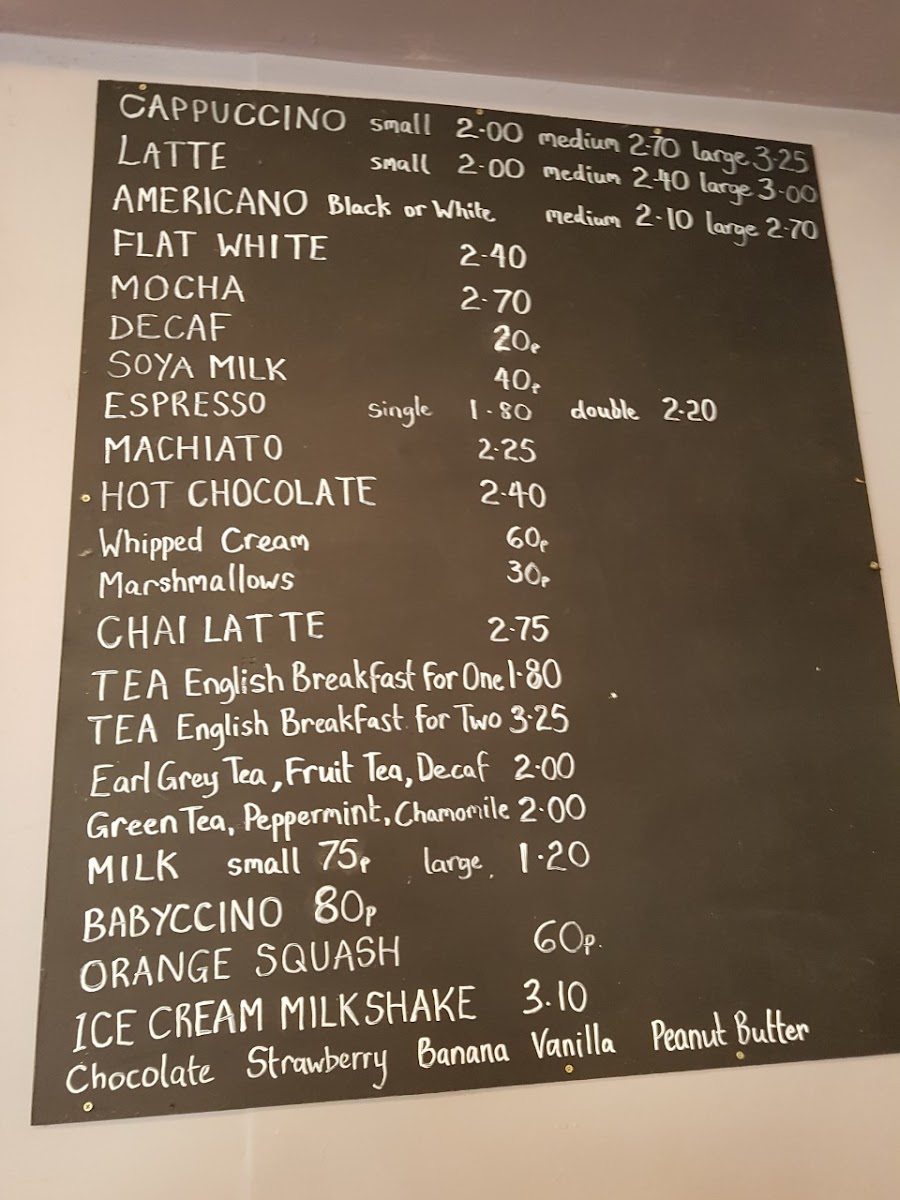 CAPPUCCINO small 2·00 medium 2·70 large 3·25
LATTE small 2·00 medium 2·40 large 3·00
AMERICANO Black or White medium 2·10 large 2·70
FLAT WHITE 2·40
MOCHA 2·70
DECAF 20p
SOYA MILK 40p
ESPRESSO single 1·80 double 2·20
MACHIATO 2·25
HOT CHOCOLATE 2·40
Whipped Cream 60p
Marshmallows 30p
CHAI LATTE 2·75
TEA English Breakfast for One 1·80
TEA English Breakfast for Two 3·25
Earl Grey Tea, Fruit Tea, Decaf 2·00
Green Tea, Peppermint, Chamomile 2·00
MILK small 75p large 1·20
BABYCCINO 80p
ORANGE SQUASH 60p.
ICE CREAM MILKSHAKE 3.10
Chocolate Strawberry Banana Vanilla Peanut Butter